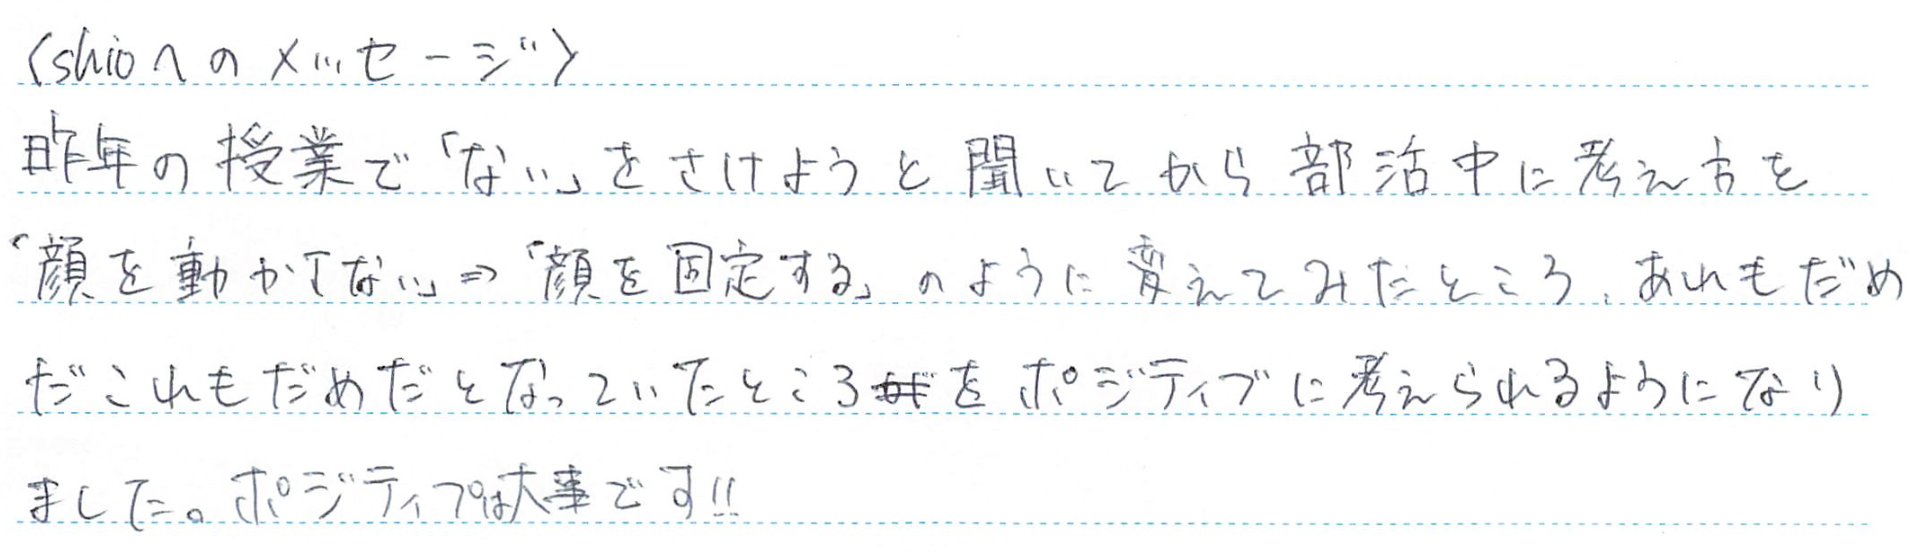 〈shioへのメッセージ〉
昨年の授業で「ない」をさけようと聞いてから部活中に考え方を
「顔を動かさない」⇒「顔を固定する」のように変えてみたところ、あれもだめ
だこれもだめだとなっていたところをポジティブに考えられるようになり
ました。ポジティブは大事です!!